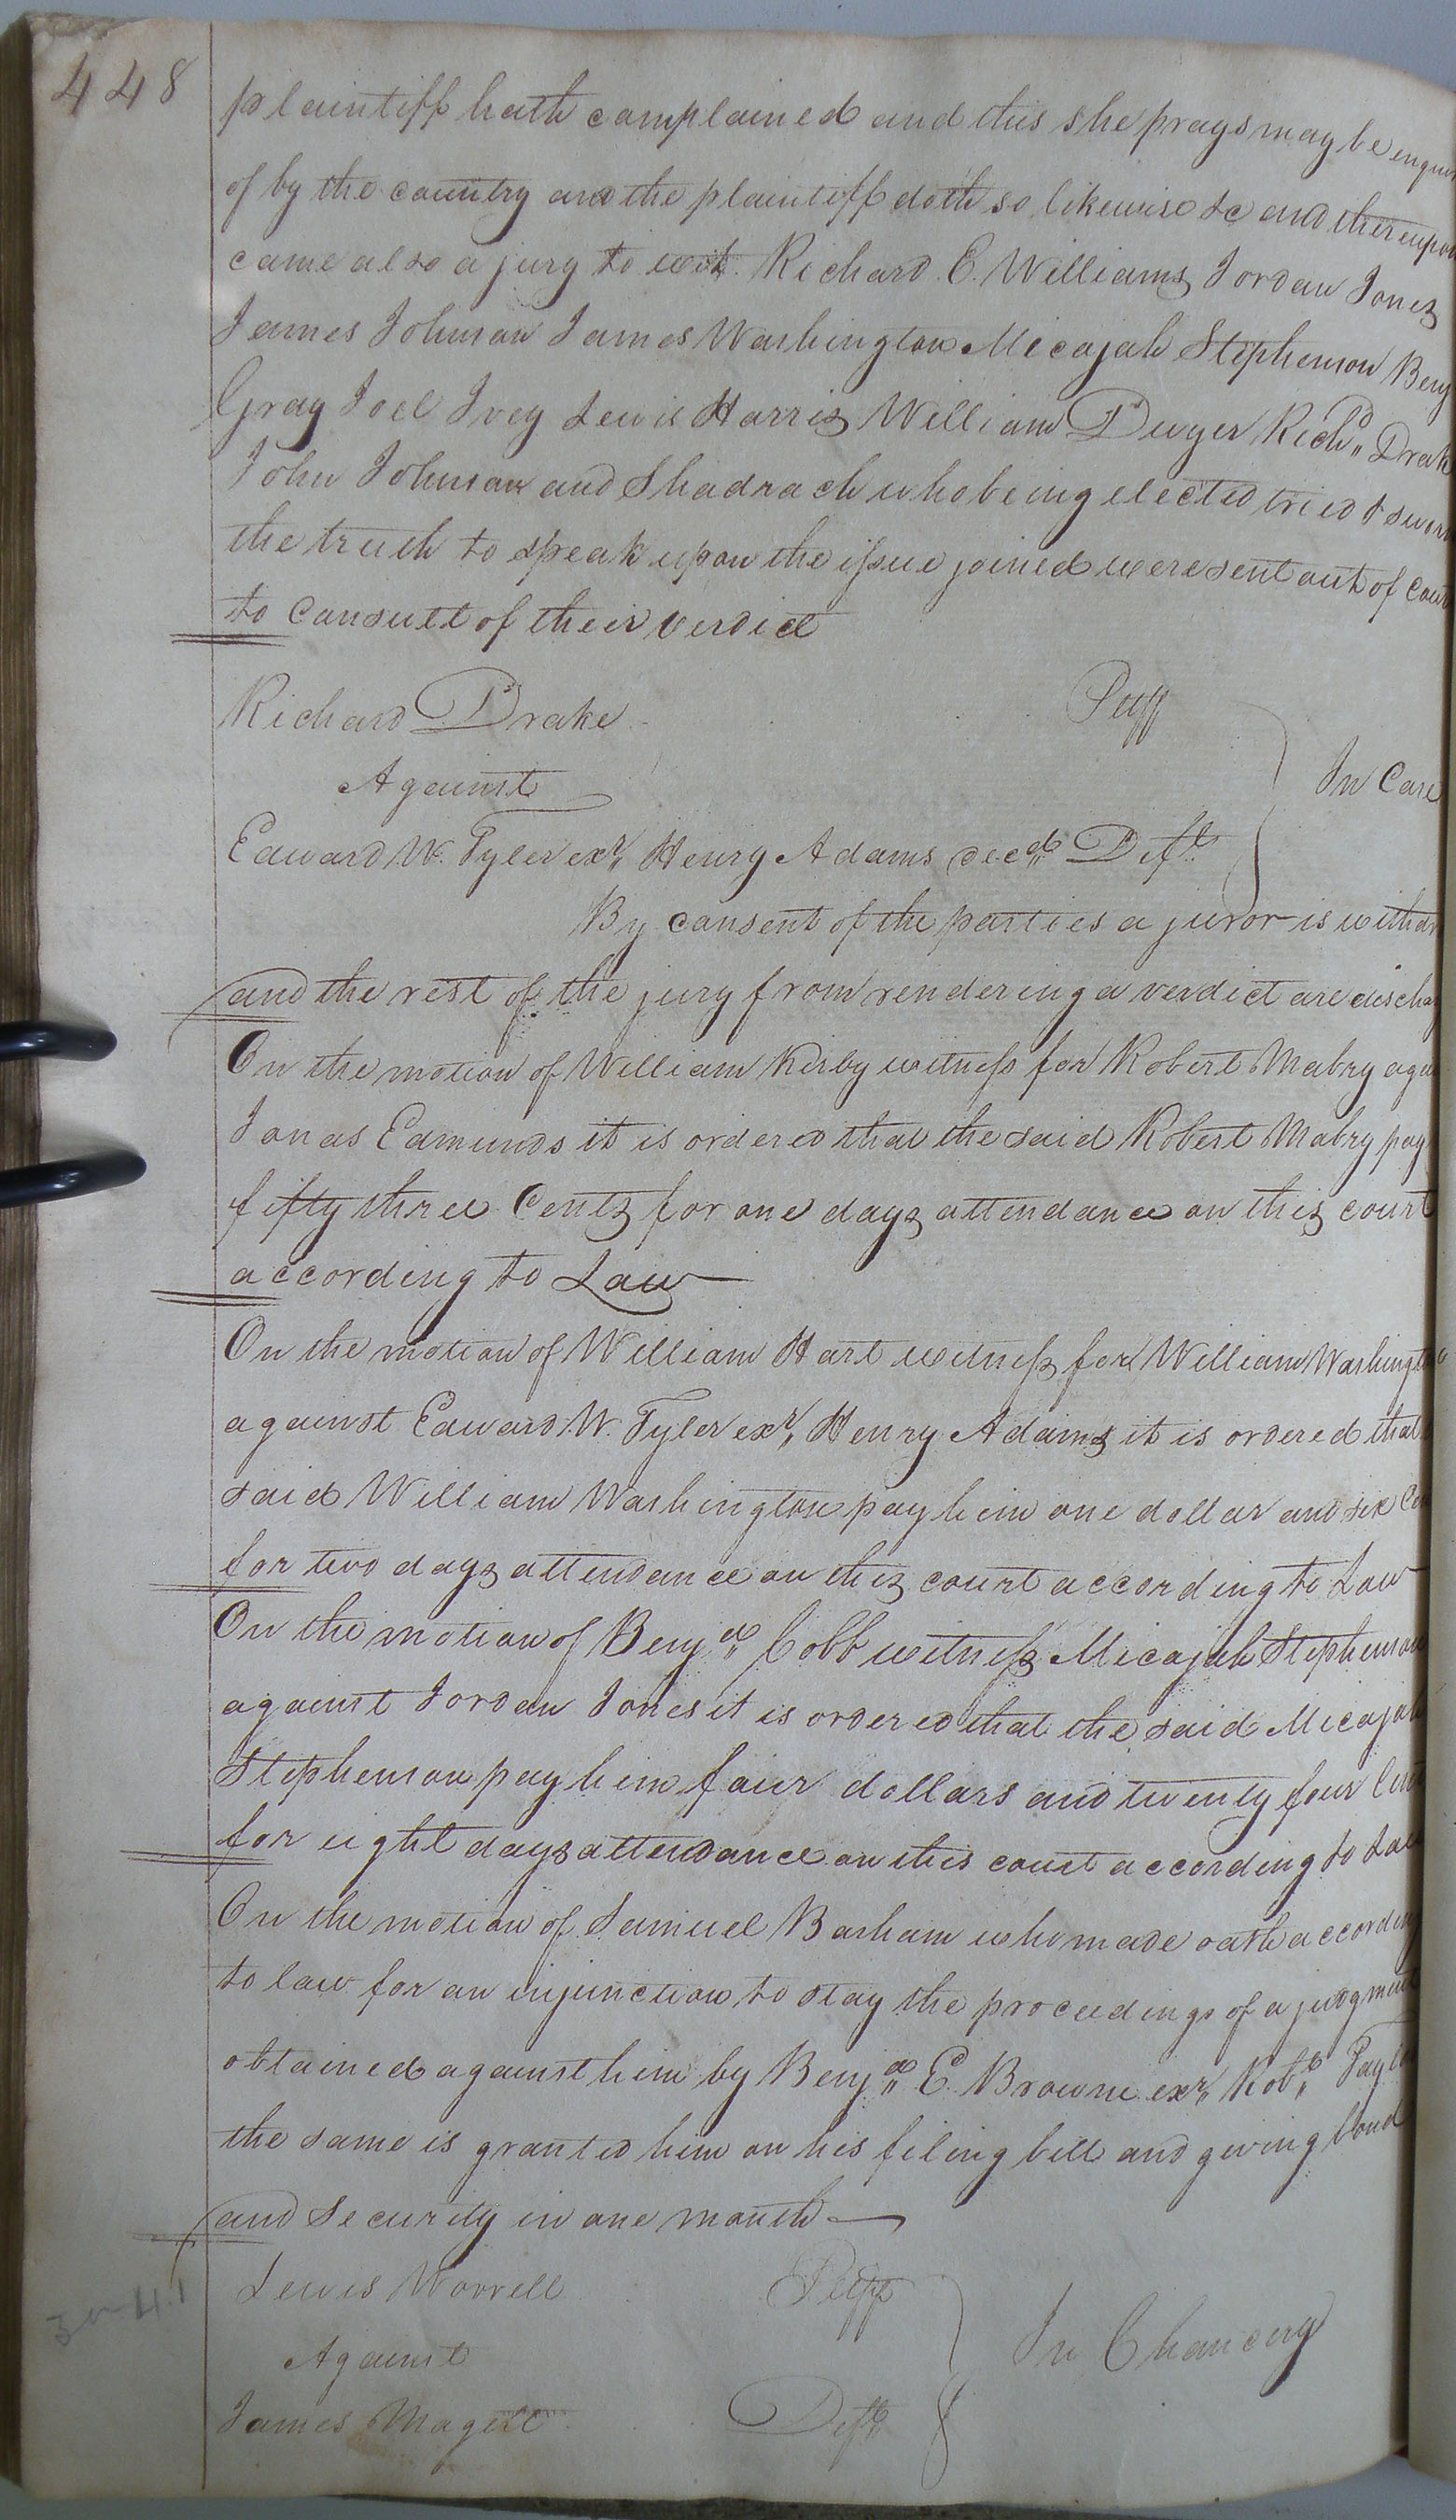 448
plaintiff hath complained and this she prays may be enqui
of by the country and the plaintiff doth so likewise &c and thereupon
came also a jury to wit. Richard E. Williams Jordan Jones
James Johnson James Washington Micajah Stephenson Benj
Gray Joel Ivey Lewis Harris William Dwyer Rich,,d Drak
John Johnson and Shadrach who being elected tried & sworn
the truth to speak upon the issue joined were sent out of Cour
to Consult of their verdict
Richard Drake Plff
Against In Case
Edward W. Tyler exr,, Henry Adams dec,,d Deft
By consent of the parties a juror is withdr
and the rest of the jury from rendering a verdict are discha
On the motion of William Kirby witness for Robert Mabry aga
Jonas Edmunds it is ordered that the said Robert Mabry pay
fifty three Cents for one days attendance on this court
according to Law
On the motion of William Hart witness for William Washington
against Edward W. Tyler exr,, Henry Adams it is ordered that
said William Washington pay him one dollar and six Cen
for two days attendance on this court according to Law
On the motion of Benj,,a Cobb witness Micajah Stephenson
against Jordan Jones it is ordered that the said Micajah
Stephenson pay him four dollars and twenty four Cents
for eight days attendance on this court according to Law
On the motion of Samuel Barham who made oath according
to law for an injunction to stay the proceedings of a judgment
obtained against him by Benj,,a E. Browne exr,, Rob,,t Taylo
the same is granted him on his filing bill and giving bond
and Security in one month
Lewis Worrell Plff
Against In Chancery
James Magett Deft